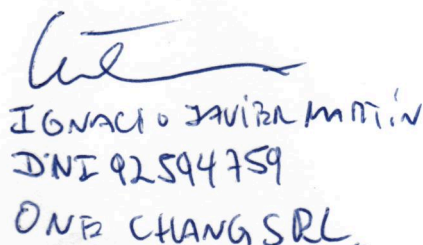 IGNACIO JAVIER MARTÍN
DNI 92594759
ONE CHANG SRL